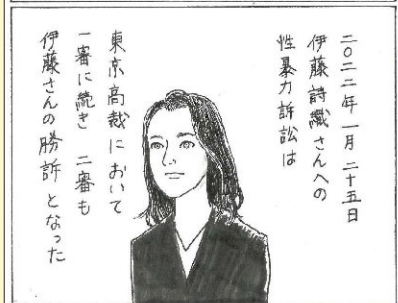 二〇二二年一月二十五日
伊藤詩織さんへの
性暴力訴訟は
東京高裁において
一審に続き 二審も
伊藤さんの勝訴となった